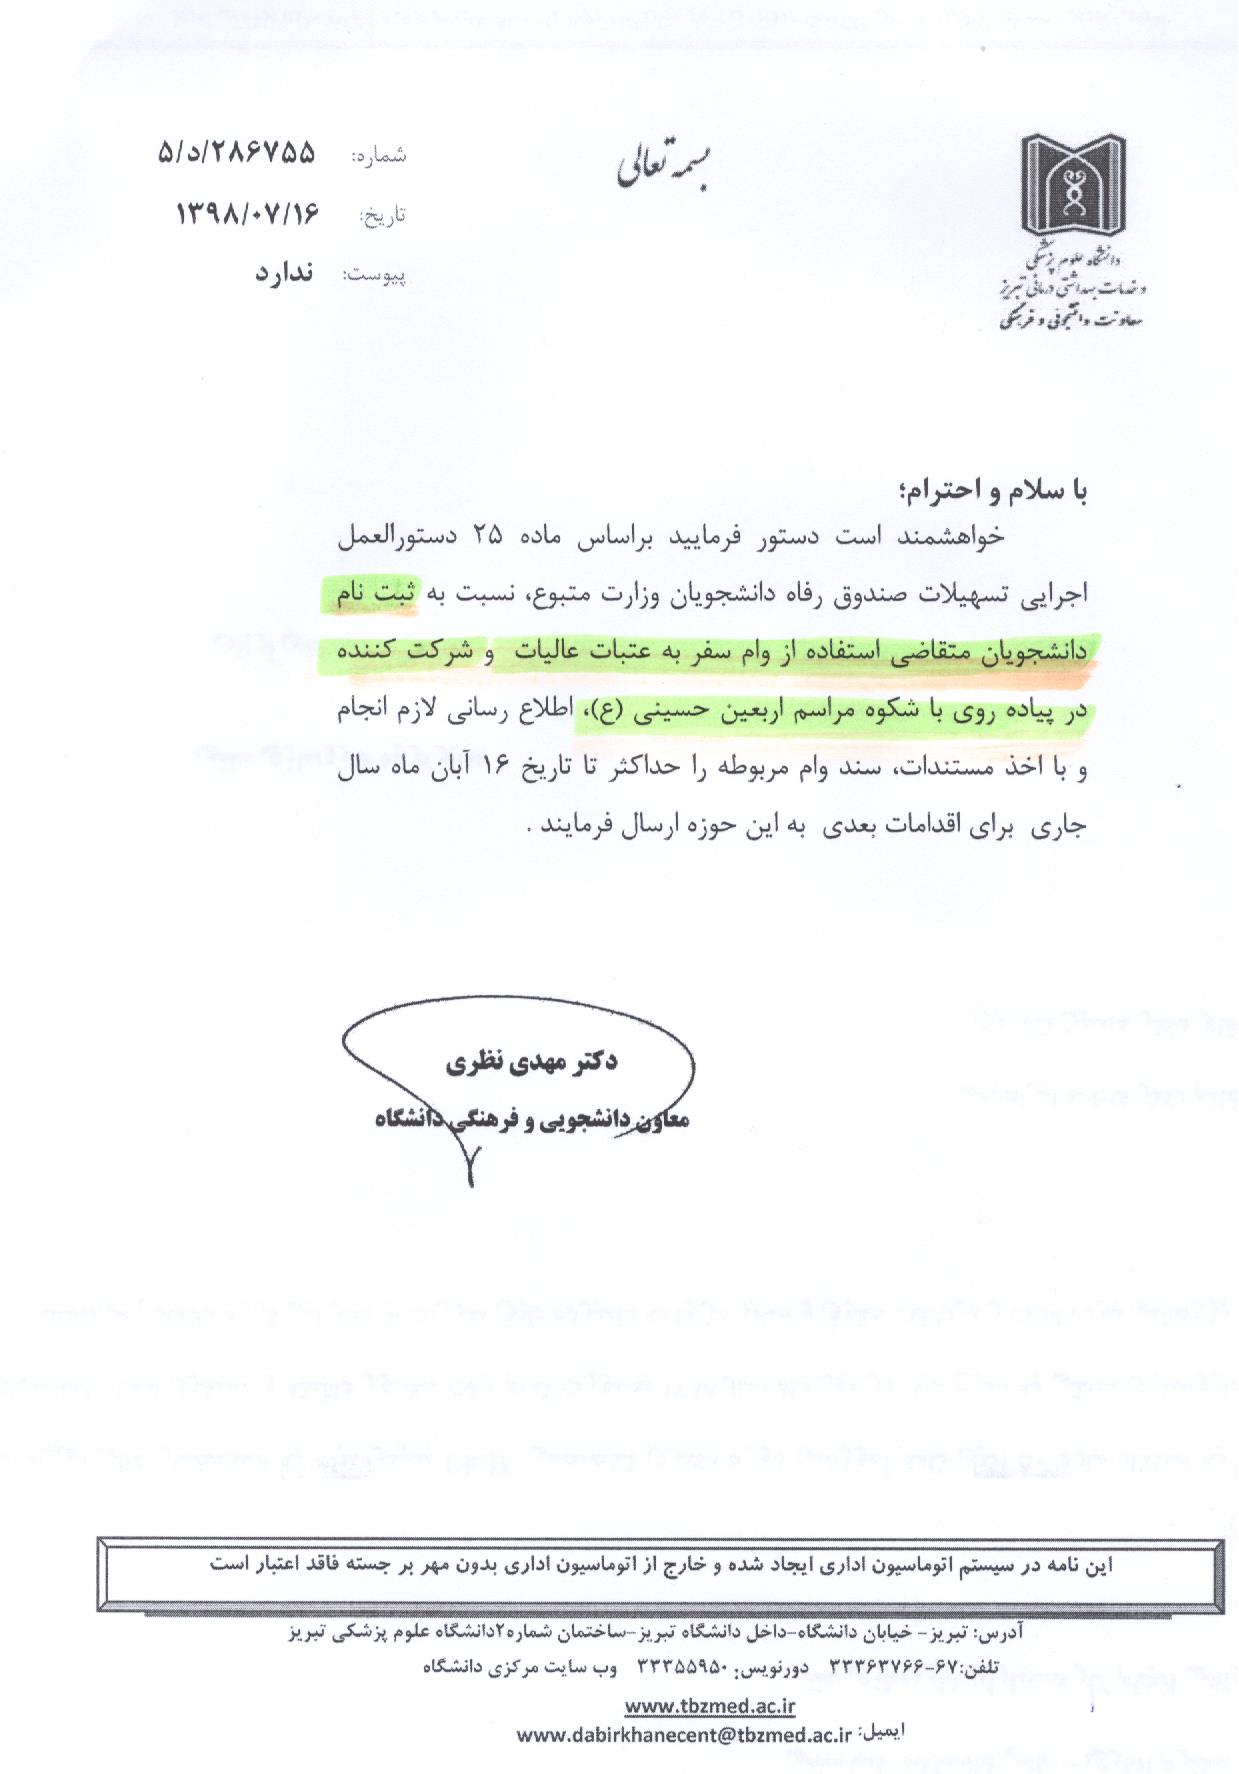 بسمه تعالی
شماره: ۵/د/۲۸۶۷۵۵
تاریخ: ۱۳۹۸/۰۷/۱۶
پیوست: ندارد
دانشگاه علوم پزشکی
و خدمات بهداشتی درمانی تبریز
معاونت دانشجوئی و فرهنگی
با سلام و احترام؛
خواهشمند است دستور فرمایید براساس ماده ۲۵ دستورالعمل
اجرایی تسهیلات صندوق رفاه دانشجویان وزارت متبوع، نسبت به ثبت نام
دانشجویان متقاضی استفاده از وام سفر به عتبات عالیات و شرکت کننده
در پیاده روی با شکوه مراسم اربعین حسینی (ع)، اطلاع رسانی لازم انجام
و با اخذ مستندات، سند وام مربوطه را حداکثر تا تاریخ ۱۶ آبان ماه سال
جاری برای اقدامات بعدی به این حوزه ارسال فرمایند .
دکتر مهدی نظری
معاون دانشجویی و فرهنگی دانشگاه
این نامه در سیستم اتوماسیون اداری ایجاد شده و خارج از اتوماسیون اداری بدون مهر بر جسته فاقد اعتبار است
آدرس: تبریز- خیابان دانشگاه-داخل دانشگاه تبریز-ساختمان شماره۲دانشگاه علوم پزشکی تبریز
تلفن:۶۷-۳۳۳۶۳۷۶۶ دورنویس: ۳۳۳۵۵۹۵۰ وب سایت مرکزی دانشگاه
www.tbzmed.ac.ir
ایمیل: www.dabirkhanecent@tbzmed.ac.ir